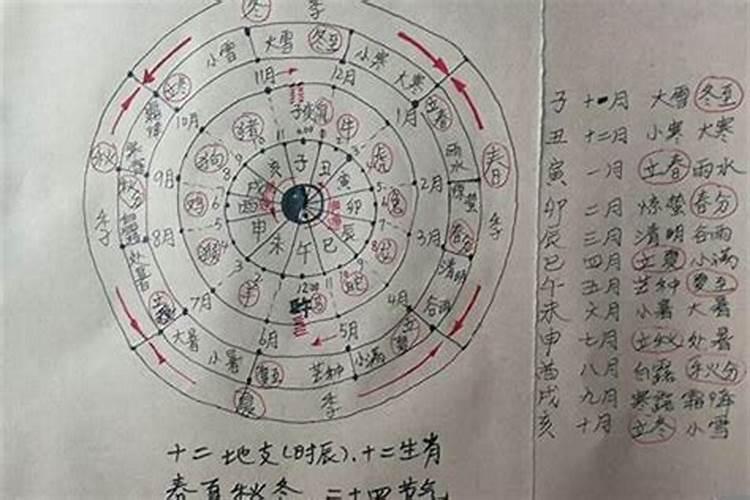 冬 季
小雪 大雪 冬至 小寒 大寒
立冬 11月 12月 1月 立春
10月 子 鼠 牛 2月 雨水
秋 猪 虎 春
狗 亥 子 丑 寅
9月 鸡 戌 酉 卯 兔 惊蛰
季 秋分 申 未 午 巳 辰 3月 春分 季
8月 处暑 清明
立秋 7月 羊 12:00 4月 谷雨
大暑 小暑 6月 5月 小满 立夏
夏至 芒种
夏 季
子 十一月 大雪 冬至
丑 十二月 小寒 大寒
寅 一月 立春 雨水
卯 二月 惊蛰 春分
辰 三月 清明 谷雨
巳 四月 立夏 小满
午 五月 芒种 夏至
未 六月 小暑 大暑
申 七月 立秋 处暑
酉 八月 白露 秋分
戌 九月 寒露 霜降
亥 十月 立冬 小雪
十二地支(时辰)、十二生肖
春夏秋冬 二十四节气